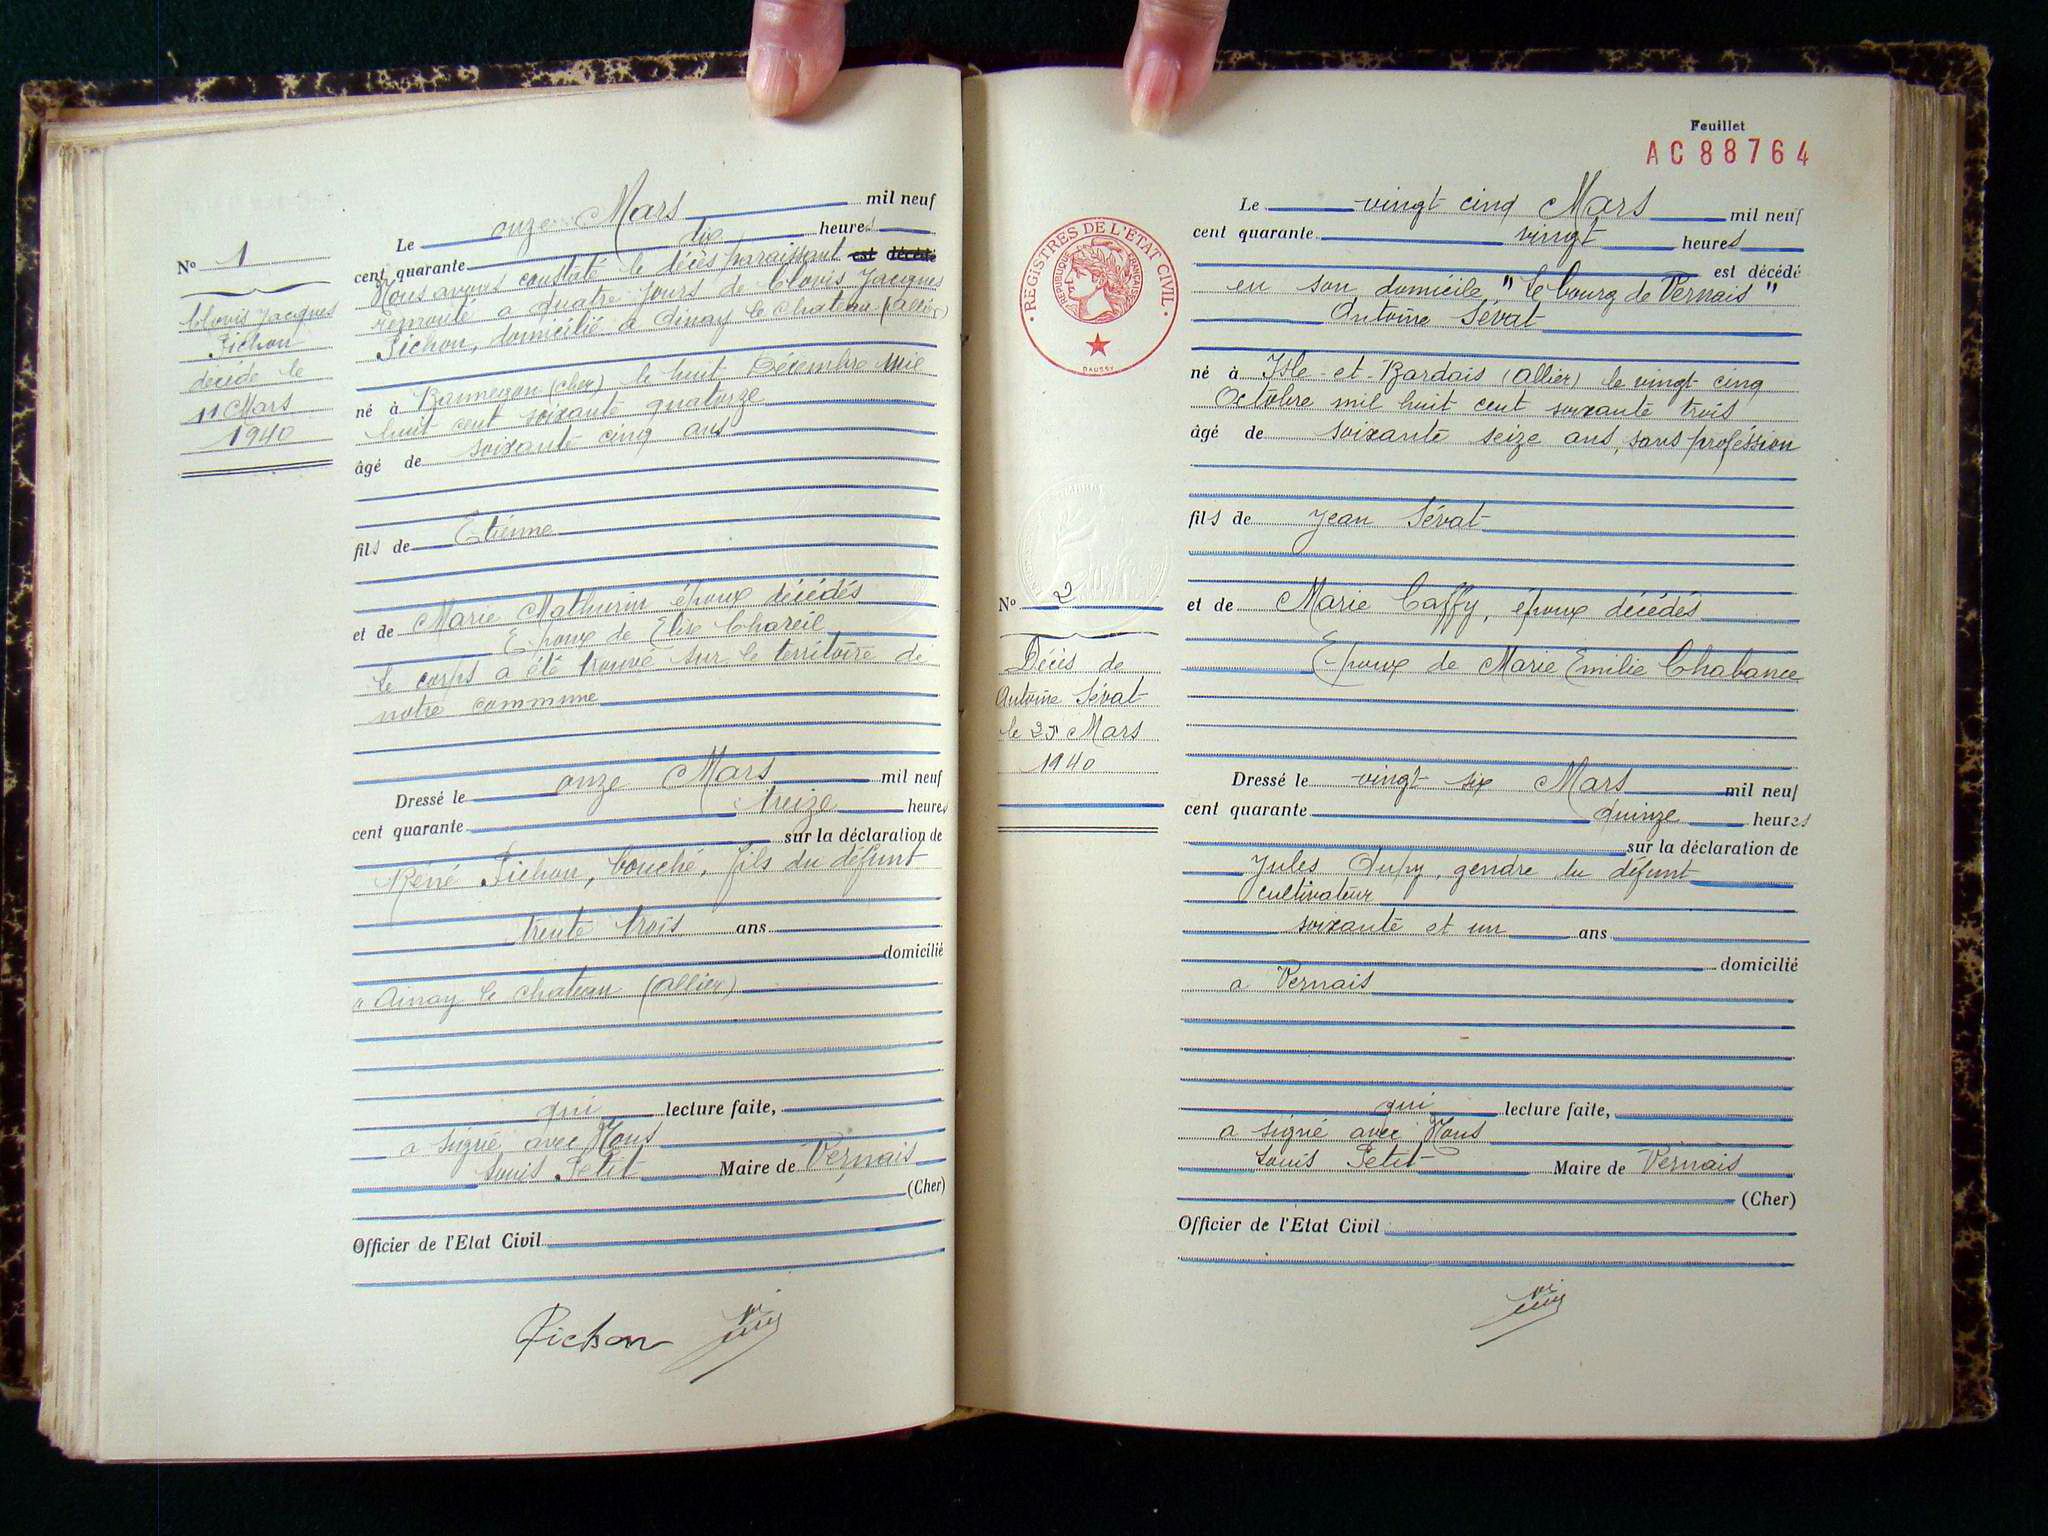 Nº 1
Clovis Jacques
Pichon
décédé le
11 Mars
1940
Le onze Mars mil neuf
cent quarante dix heures
Nous avons constaté le décès paraissant est décédé
remonté a quatre jours de Clovis Jacques
Pichon, domicilié a Ainay le Chateau (allier)
né à Bannegon (cher) le huit Décembre mil
huit cent soixante quatorze
âgé de soixante cinq ans
fils de Etienne
et de Marie Mathurin époux décédés
Epoux de Elise Chareil
Le corps a été trouvé sur le territoire de
notre commune
Dressé le onze Mars mil neuf
cent quarante treize heures
sur la déclaration de
René Pichon, bouché, fils du défunt
trente trois ans
domicilié
a Ainay le chateau (allier)
qui lecture faite,
a signé avec Nous
Louis Petit Maire de Vernais
(Cher)
Officier de l'Etat Civil
Pichon
Feuillet
AC88764
REGISTRES DE L'ÉTAT CIVIL
REPUBLIQUE FRANÇAISE
DAUSSY
Nº 2
Décès de
Antoine Sévat
le 25 Mars
1940
Le vingt cinq Mars mil neuf
cent quarante vingt heures
est décédé
en son domicile "Le bourg de Vernais"
Antoine Sévat
né à Isle-et-Bardais (allier) le vingt cinq
Octobre mil huit cent soixante trois
âgé de soixante seize ans, sans profession
fils de Jean Sévat
et de Marie Caffy, époux décédés
Epoux de Marie Emilie Chabance
Dressé le vingt six Mars mil neuf
cent quarante quinze heures
sur la déclaration de
Jules Dupy, gendre du défunt
cultivateur
soixante et un ans
domicilié
a Vernais
qui lecture faite,
a signé avec Nous
Louis Petit Maire de Vernais
(Cher)
Officier de l'Etat Civil